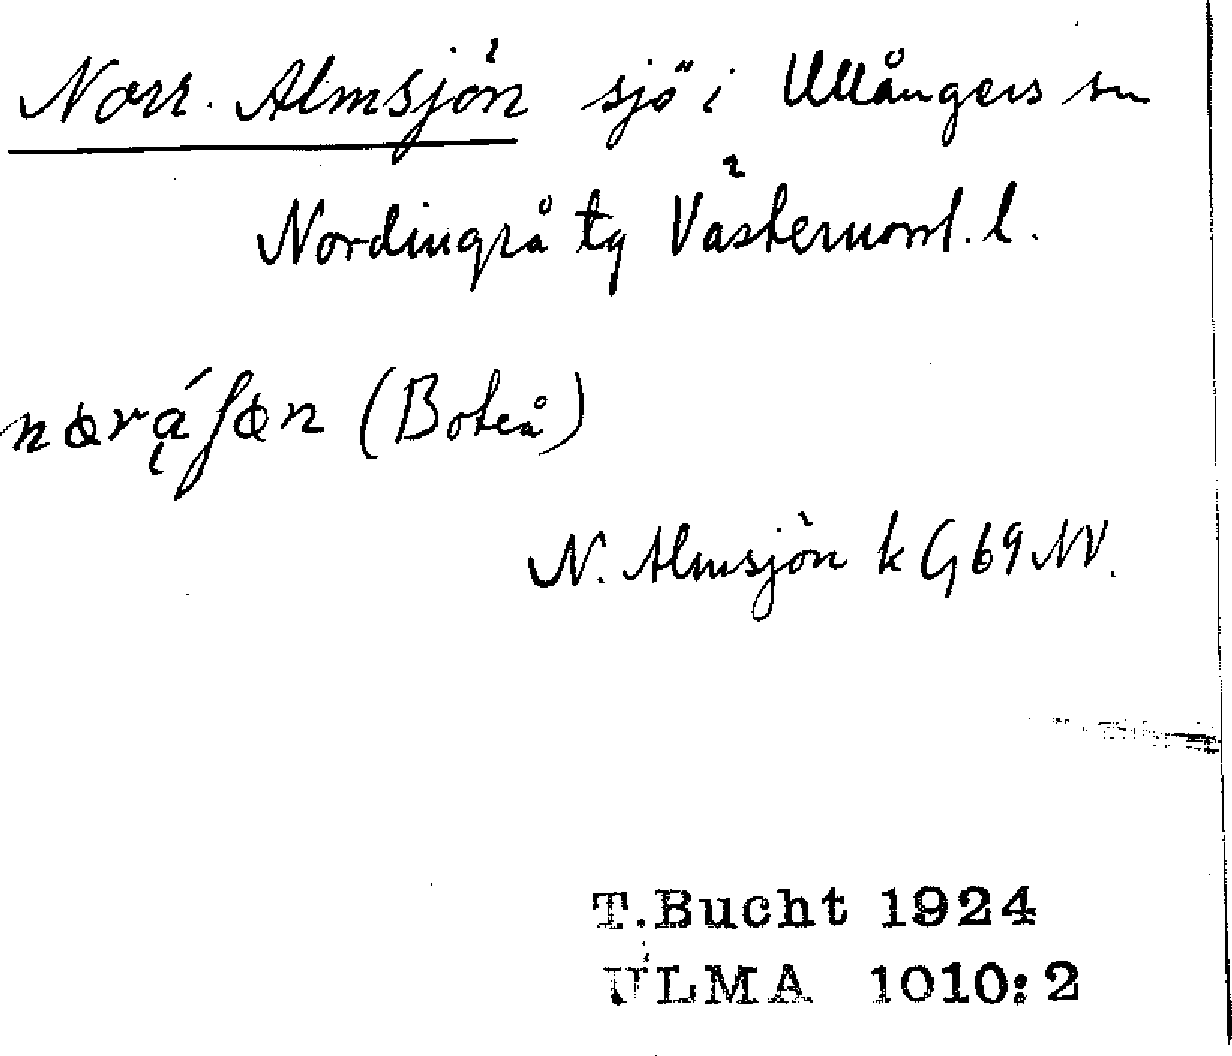 Norr. Almsjön sjö i Ullångers sn
Nordingrå tg Västernorrl. l.
(Boteå)
N. Almsjön k G 69 NV.
T.Bucht 1924
ULMA 1010:2